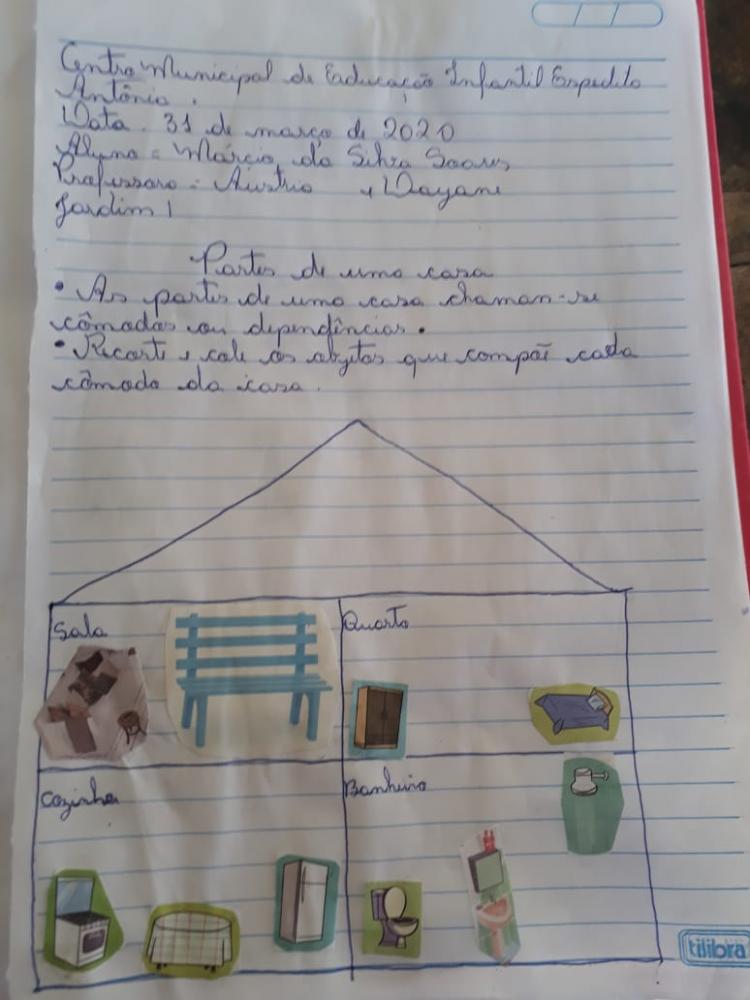 Centro Municipal de Educação Infantil Expedito
Antônio.
Data. 31 de março de 2020
Aluno = Márcio da Silva Soares
Professora = e Dayane
Jardim 1
Partes de uma casa
• As partes de uma casa chaman-se
cômodos ou dependências.
• Recorte e cole os objetos que compõe cada
cômodo da casa.
Sala
Quarto
Cozinha
Banheiro
tilibra